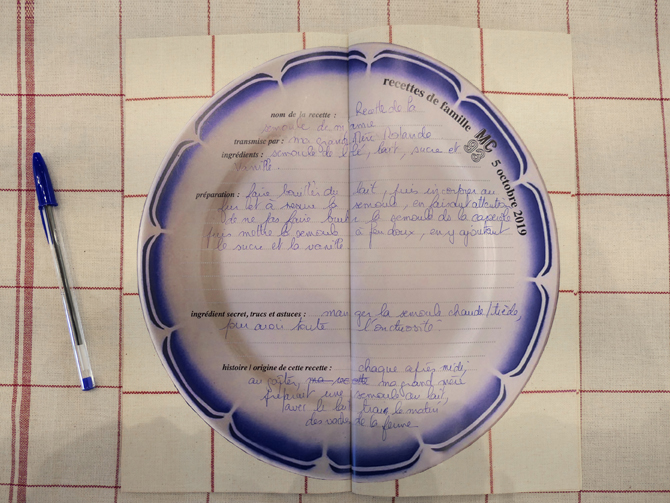 recettes de famille
MC 93
5 octobre 2019
nom de la recette : Recette de la
semoule de mamie
transmise par : ma grand mère Yolande
ingrédients : semoule de blé, lait, sucre et
vanille.
préparation : faire bouillir du lait, puis incorporer au
fur et à mesure la semoule, en faisant attention
de ne pas faire la semoule de la
puis mettre la semoule à feu doux, en y ajoutant
le sucre et la vanille
ingrédient secret, trucs et astuces : manger la semoule chaude/tiède,
pour avoir toute l'onctuosité
histoire / origine de cette recette : chaque après midi,
au goûter, ma grand mère
préparait une semoule au lait,
avec le lait trait le matin
des vaches de la ferme